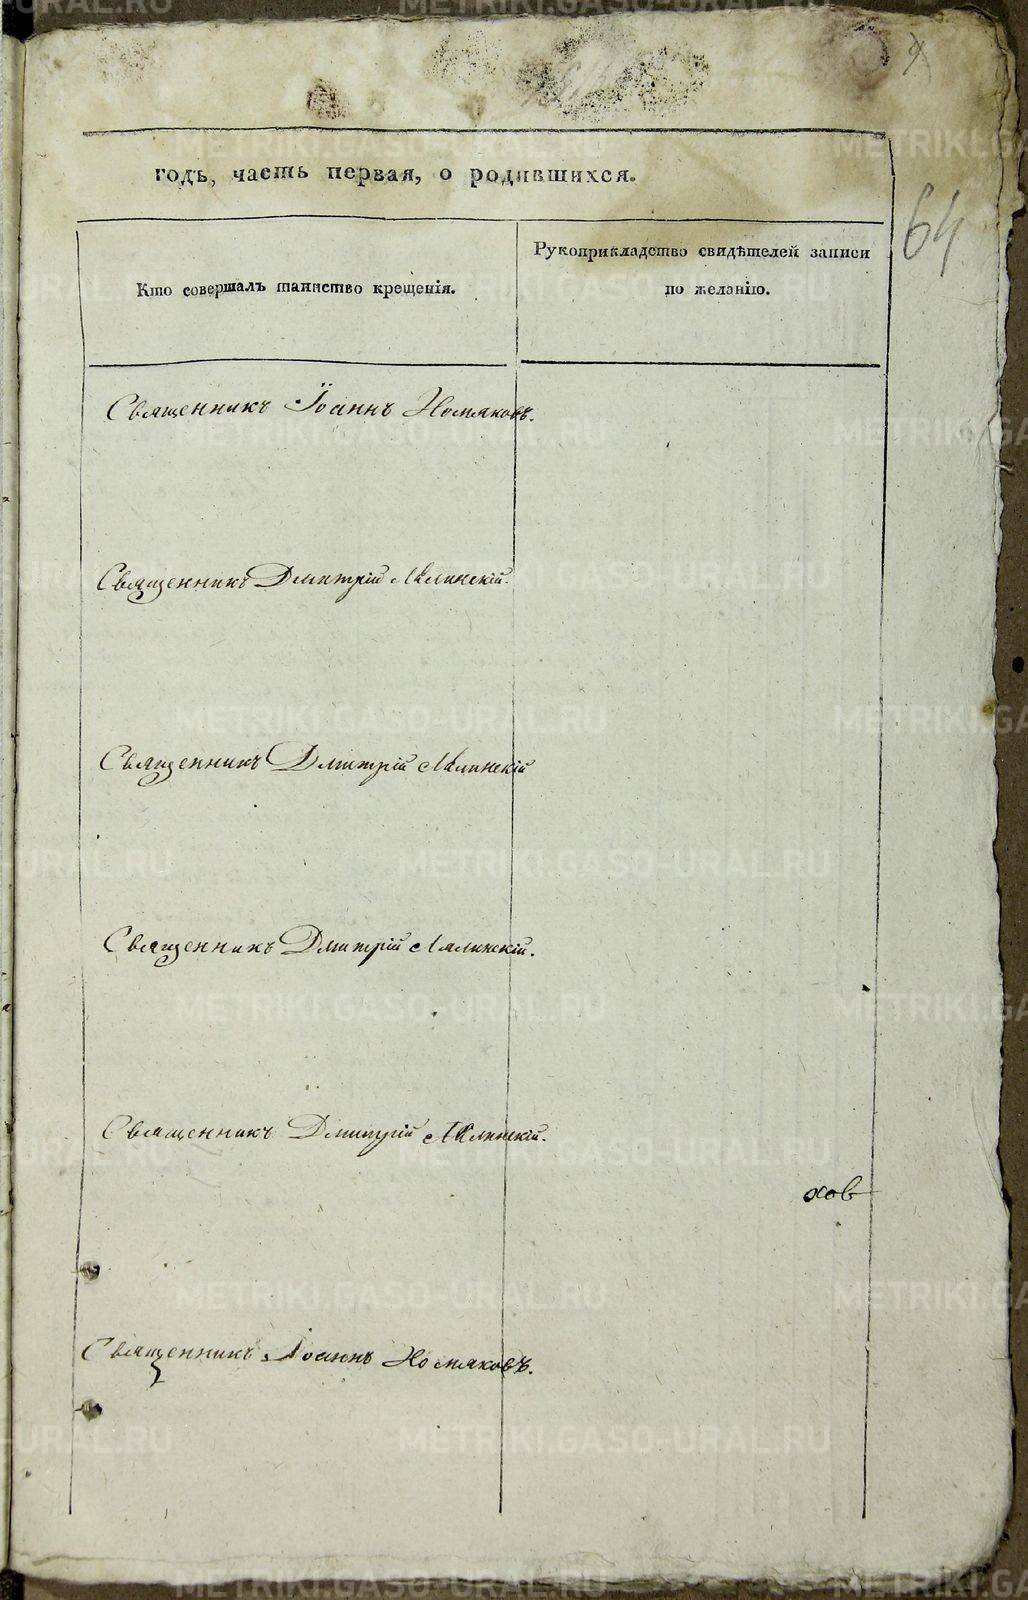 64
годъ, часть первая, о родившихся.
Кто совершалъ таинство крещенія.
Рукоприкладство свидѣтелей записи
по желанію.
Священникъ Іоаннъ Хомяковъ.
Священникъ Дмитрій Лялинскій.
Священникъ Дмитрій Лялинскій
Священникъ Дмитрій Лялинскій.
Священникъ Дмитрій Лялинскій.
хов
Священникъ Іоаннъ Хомяковъ.
METRIKI.GASO-URAL.RU